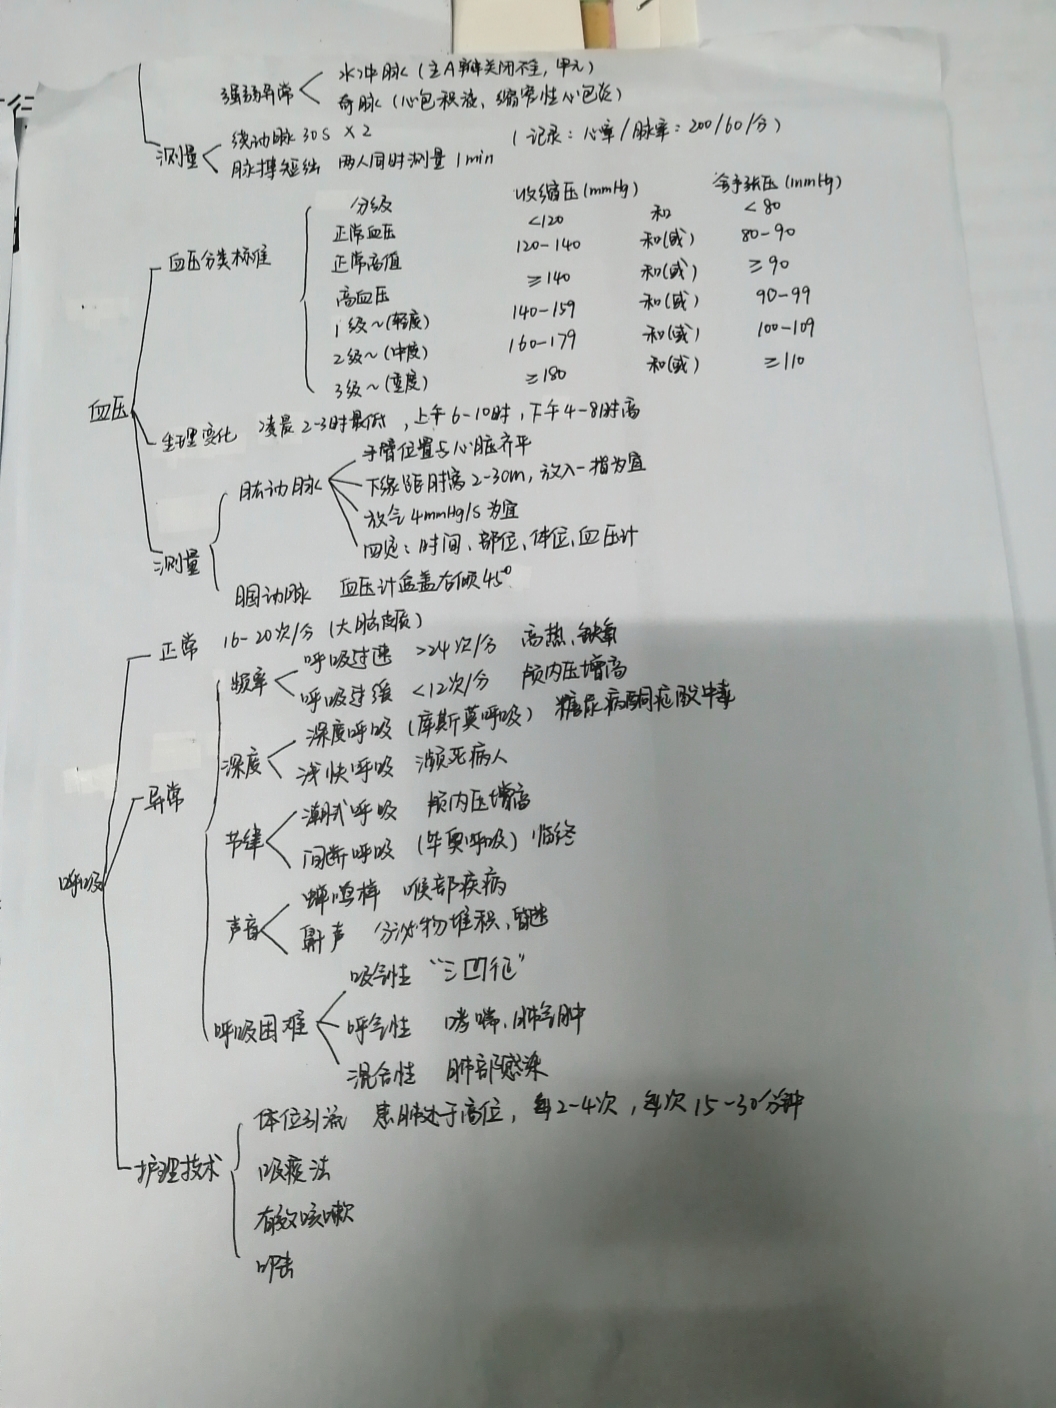 水冲脉（主A瓣关闭不全，甲亢）
强弱异常
奇脉（心包积液、缩窄性心包炎）
测量
绕动脉 30s × 2
脉搏短绌 两人同时测量 1min （记录：心率/脉率：200/60/分）
血压分类标准
分级 收缩压(mmHg) 舒张压(mmHg)
正常血压 <120 和 <80
正常高值 120-140 和(或) 80-90
高血压 ≥140 和(或) ≥90
1级～(轻度) 140-159 和(或) 90-99
2级～(中度) 160-179 和(或) 100-109
3级～(重度) ≥180 和(或) ≥110
血压
生理变化 凌晨 2-3时最低，上午6-10时，下午4-8时高
测量
肱动脉
手臂位置与心脏齐平
下缘距肘窝 2-3cm，放入一指为宜
放气 4mmHg/s 为宜
四定：时间、部位、体位、血压计
腘动脉 血压计盒盖右倾45°
呼吸
正常 16-20次/分（大脑皮质）
异常
频率
呼吸过速 >24次/分 高热、缺氧
呼吸过缓 <12次/分 颅内压增高
深度
深度呼吸（库斯莫呼吸）糖尿病酮症酸中毒
浅快呼吸 濒死病人
节律
潮式呼吸 颅内压增高
间断呼吸（毕奥呼吸）临终
声音
蝉鸣样 喉部疾病
鼾声 分泌物堆积、昏迷
呼吸困难
吸气性 “三凹征”
呼气性 哮喘、肺气肿
混合性 肺部感染
护理技术
体位引流 患肺处于高位，每2-4次，每次15-30分钟
吸痰法
有效咳嗽
叩击